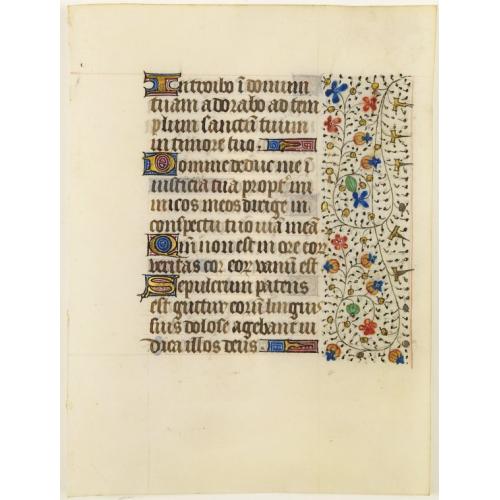 Introibo ī domum
tuam adorabo ad tem
plum sanctū tuum
in timore tuo
Domine deduc me ī
iusticia tua propt̄ ini
micos meos dirige in
conspectu tuo uiā meā
Qm̄ non est in ore eor
veritas cor eor vanū est
Sepulcrum patens
est guttur eorū linguis
suis dolose agebant iu
dica illos deus